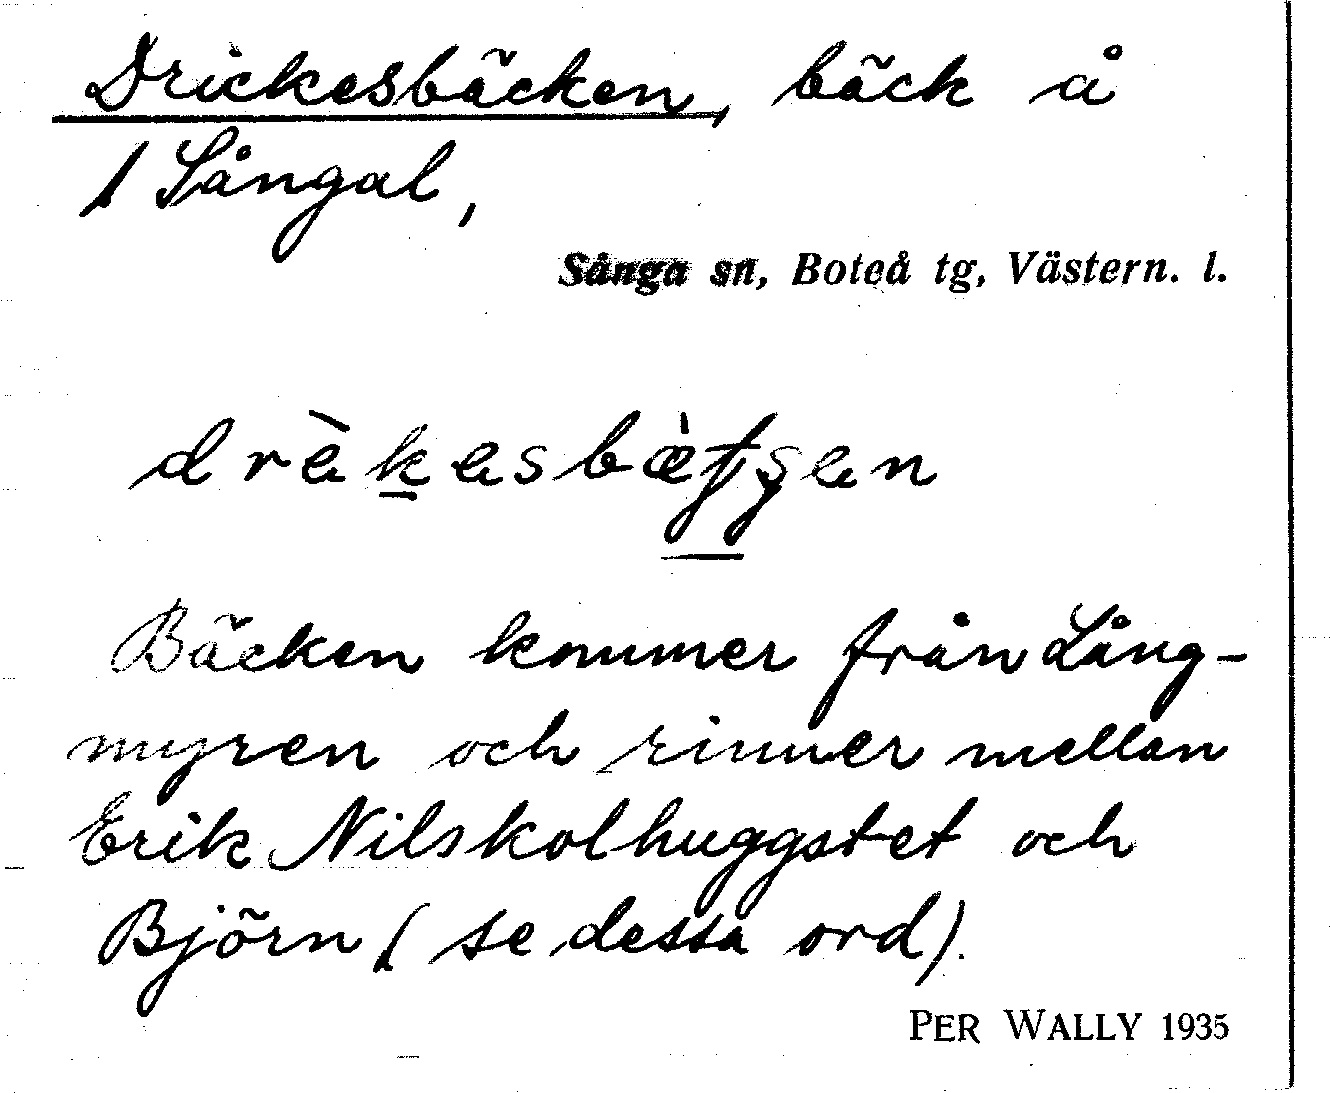 Drickesbäcken, bäck å
1 Sångal,
Sånga sn, Boteå tg, Västern. l.
Bäcken kommer från Lång-
myren och rinner mellan
Erik Nilskolhuggstet och
Björn ( se dessa ord).
PER WALLY 1935